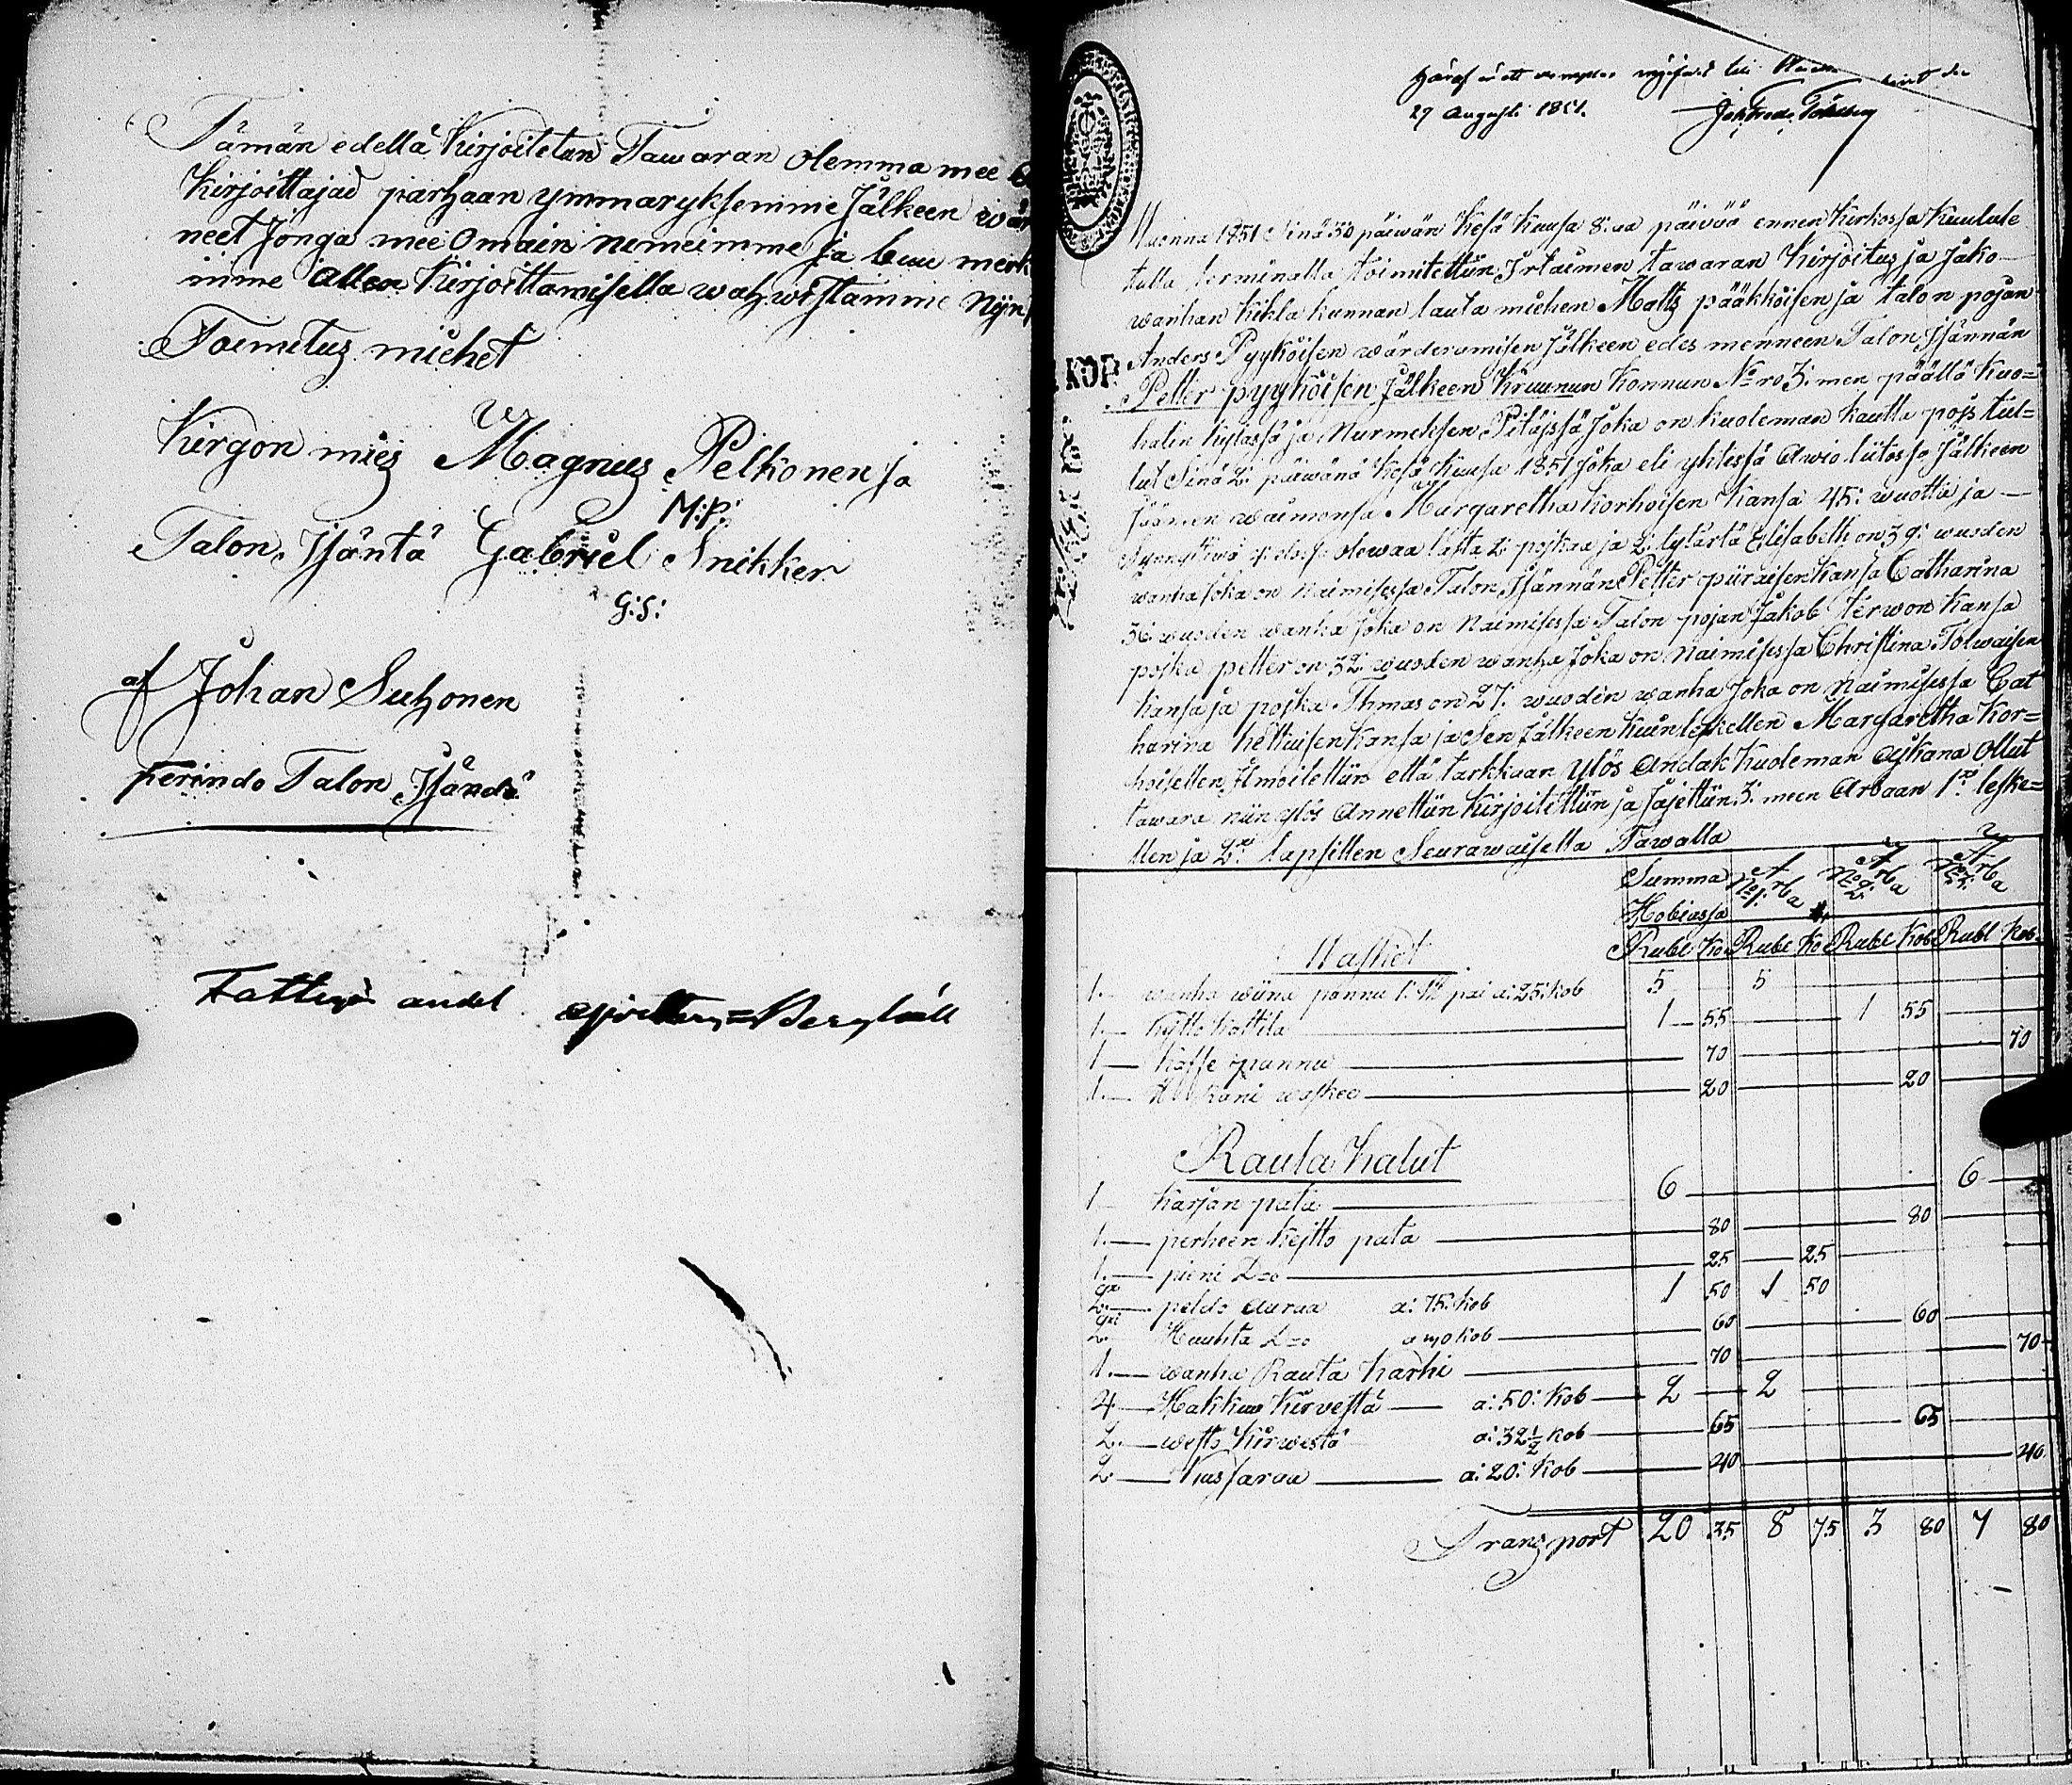 Tämän edellä Kirjoitetan Tawaran olemma mee
Kirjoittajad parhaan ymmaryksemme Jälkeen wär
neet Jonga mee Omain nimeimme ja buu merk
imme allen Kirjoittamisella wahwistamme Nijn
Toimitus miehet
Kirgon mies Magnus Pelkonen ja
M:P:
Talon Isäntä Gabriel Snikker
G:S:
af Johan Suhonen
perindo Talon Isändä
Fattige andel
Häraf är ett exemplar till
27 Augusti 1851.
Wuonna 1851 Sinä 30 päiwän Kesä Kuusa 8:aa päiwää ennen Kirkossa Kuulute
tulla terminalla toimitettiin Irtaimen tawaran Kirjoitus ja Jako
wanhan Kihla kunnan lauta miehen Matts pääkköisen ja talon pojan
Anders Pyyköisen wärderamisen Jälkeen edes menneen Talon Isännän
KOP:
Petter pyyköisen Jälkeen Kruunun Konnun No ro 3: men päällä Kuo=
halin Kylässä ja Nurmeksen Pitäjssä Joka on Kuoleman Kautta pojs tul=
lut Sinä 2: päiwänä Kesä Kuusa 1851 Joka eli yhtessä Awio liitosa Jälkeen
Jäänen waimonsa Margaretha Korhoisen Kansa 45: wuotta ja
olewaa lasta 2: poikaa ja 2: tytärtä Elisabeth on 39: wuoden
wanha Joka on Naimisessa Talon Isännän Petter piiraisen Kansa Catharina
36: wuoden wanha Joka on Naimisessa Talon pojan Jakob Terwon Kansa
poika petter on 32: wuoden wanha Joka on Naimisessa Christina Tolwaisen
Kansa ja pojka Thmas on 27: wuoden wanha Joka on Naimisessa Cat
harina Kettuisen Kansa ja Sen Jälkeen Kuin leskellen Margaretha Kor=
hoisellen Ilmoitettiin että tarkkaan ylös Andak Kuoleman ajkana Ollut
tawara niin ylös Annettiin Kirjoitettiin ja Jajettiin 3: meen Arbaan 1:o leske=
llen ja 2: lapsillen Seurawaisella Tawalla
Summa Arba No 1: Arba No 2: Arba No 3:
Hobiassa
Rubl Ko Rubl Ko Rubl Kob Rubl kob
Wasket
1. wanha wiina pannu 1: a: 25: kob 5 5
1. Kytto Kattila 1 55 1 55
1 Kaffe pannu 70 70
1. waskee 20 20
Rauta Kalut
1 Karjan pata 6 6
1. perheen Kejtto pata 80 80
1. pieni D:o 25 25
2. peldo auraa a: 75: kob 1 50 1 50
2. Huuhta D:o kob 60 60
1. wanha Rauta Karhi 70 70
4 Hakkuu Kirvestä a: 50: Kob 2 2
2. westo Kirwestä a: 32½ kob 65 65
2. a: 20: Kob 40 40
Transport 20 35 8 75 3 80 7 80